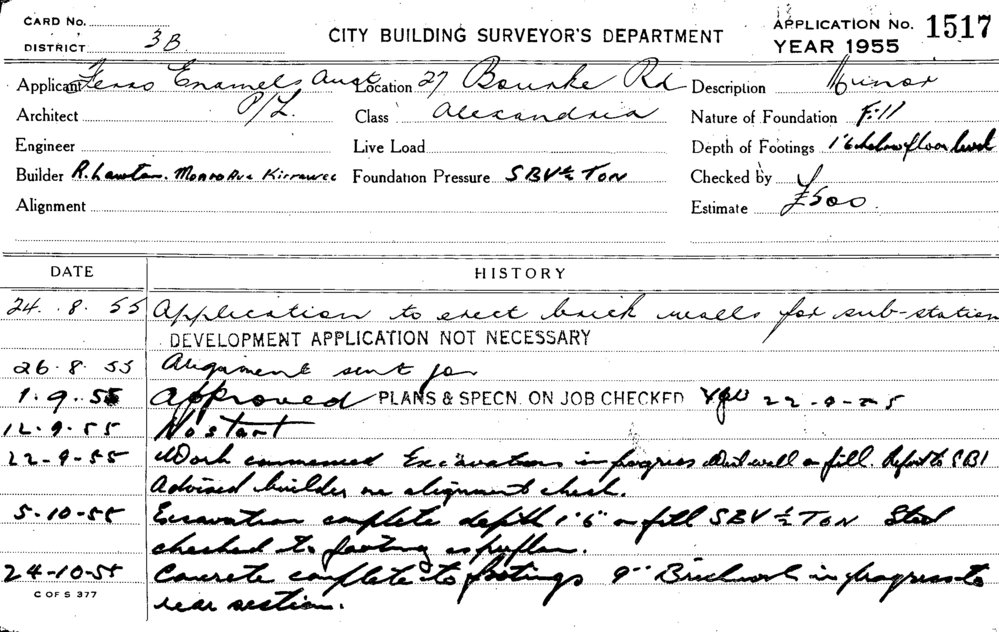 CARD No.
DISTRICT 3B
CITY BUILDING SURVEYOR'S DEPARTMENT
APPLICATION No. 1517
YEAR 1955
Applicant Ferro Enamels Aust Location 27 Bourke Rd Description Minor
Architect P/L. Class Alexandria Nature of Foundation Fill
Engineer Live Load Depth of Footings 1'6 below floor level
Builder R. Lawton. Monro Ave Kirrawee Foundation Pressure SBV ½ Ton Checked by
Alignment Estimate £500
DATE HISTORY
24. 8. 55 Application to erect brick walls for sub-station
DEVELOPMENT APPLICATION NOT NECESSARY
26. 8. 55 Alignment sent for
1. 9. 55 Approved PLANS & SPECN. ON JOB CHECKED 22-9-55
12. 9. 55 No start
22-9-55 Work commenced Excavations in progress wall on fill. Report to SBI
Advised builder re alignment check.
5-10-55 Excavation complete depth 1'6" on fill SBV ½ Ton Steel
checked to footing as per plan.
24-10-55 Concrete complete to footings 9" Brickwork in progress to
rear section.
C OF S 377